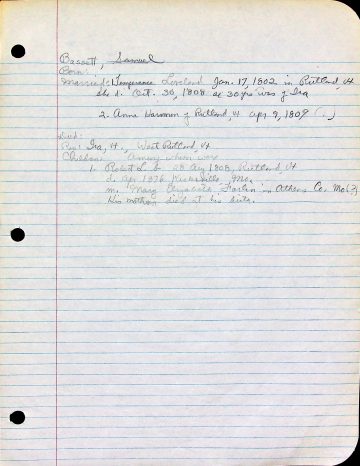 Bassett, Samuel
Born:
Married: 1. Temperance Loveland Jan. 17, 1802 in Rutland, Vt
she d. Oct. 30, 1808 ae 30 yrs was of Ira
2. Anna Harmon of Rutland, Vt Apr 9, 1809 (..)
Died:
Res: Ira, Vt., West Rutland, Vt
Children: among whom were
1. Robert L. b. 28 Aug 1808, Rutland, Vt
d. Apr. 1876 Hicksville, Mo.
m. Mary Elizabeth Farlin in Athens Co. Mo(?)
his mother died at his birth.